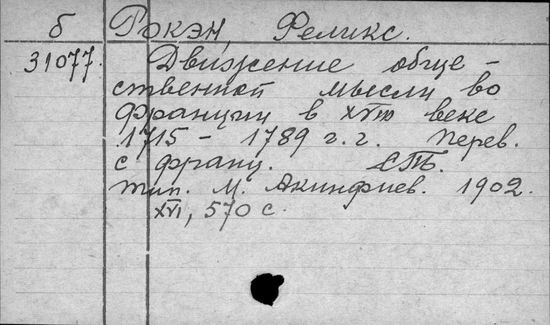 б Рокэн, Феликс.
31077. Движение обще-
ственной мысли во
Франции в XVIII веке
1715 - 1789 г.г. Перев.
с франц. СПБ.
тип. М. Акинфиев. 1902.
XVI, 570 с.